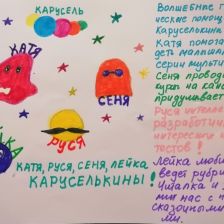 КАРУСЕЛЬ
КАТЯ
СЕНЯ
РУСЯ
КАТЯ, РУСЯ, СЕНЯ, ЛЕЙКА
КАРУСЕЛЬКИНЫ!
Волшебные г
ческие помощ
Карусельки
Катя помога
деть
серии мульти
Сеня провод
на кан
придумывает
Руся
разработчи
интересны
тестов!
Лейка люби
ведёт рубри
Читалка и
ми нас с
сказочными
ми.